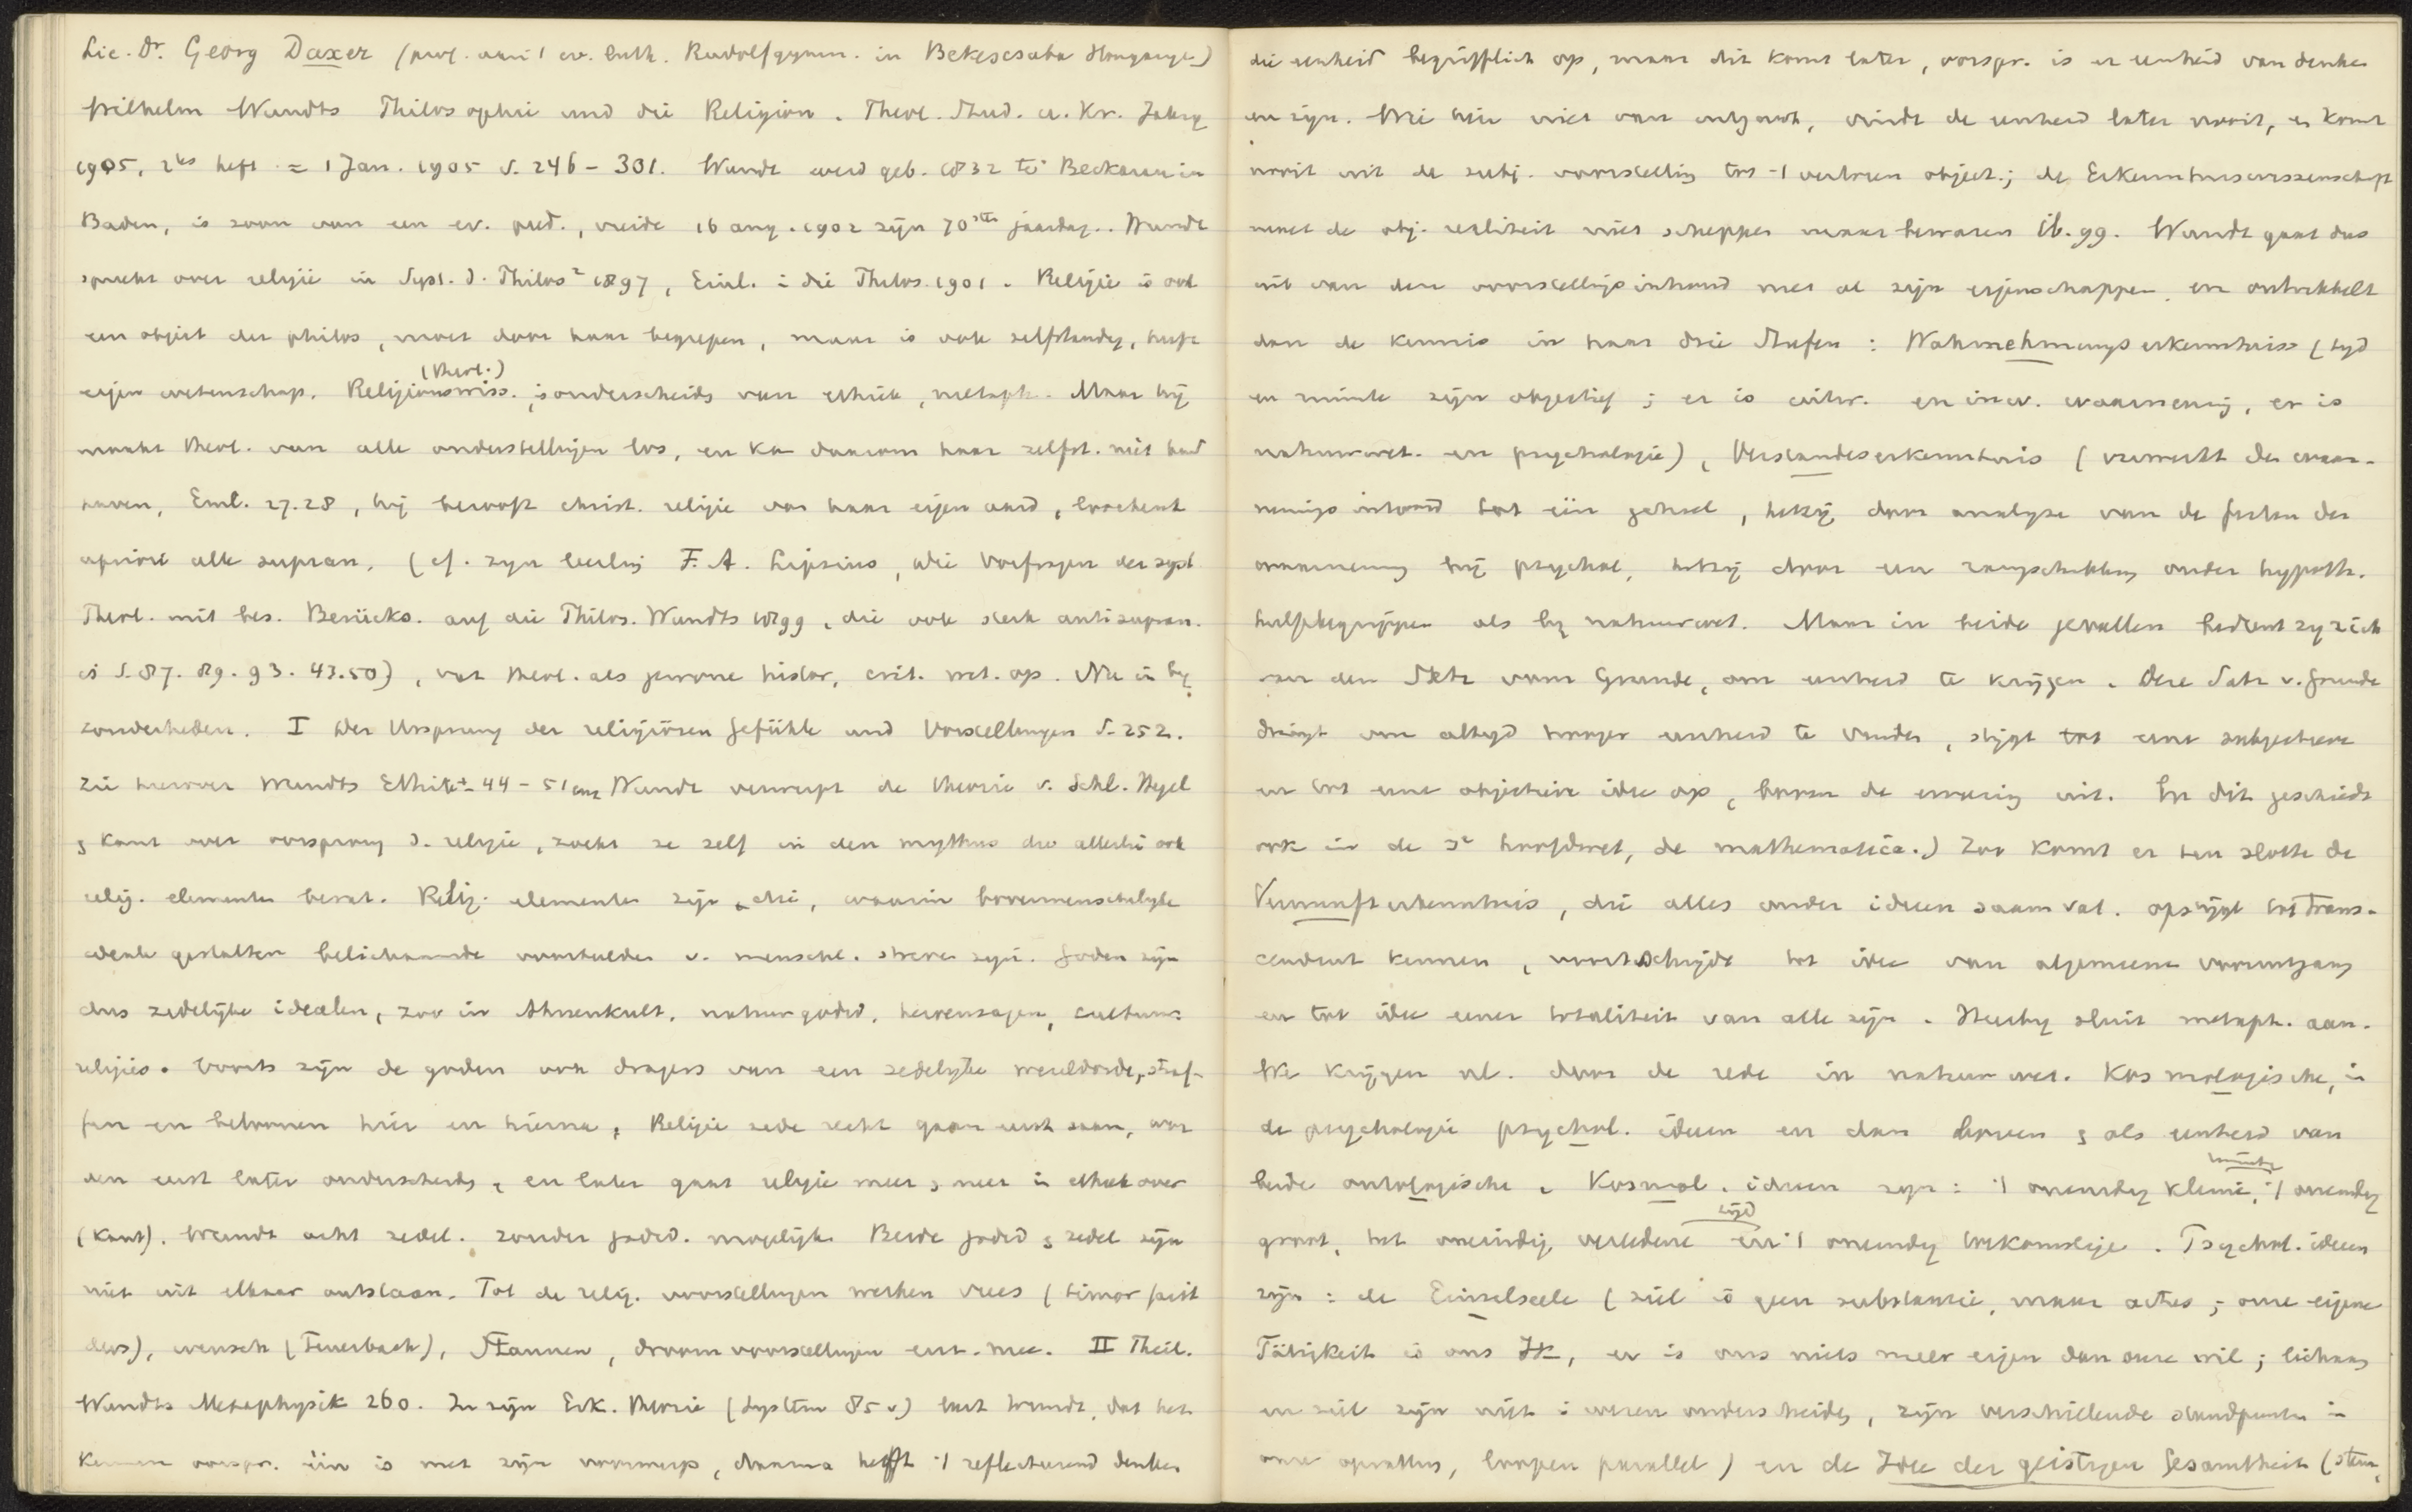 Lic. Dr. Georg Daxer (prof. aan 't ev. luth. Rudolfgymn. in Bekescsaba Hongarije)
Wilhelm Wundts Philosophie und die Religion. Theol. Stud. u. Kr. Jahrg
1905, 2tes heft = 1 Jan. 1905 S. 246-301. Wundt werd geb. 1832 te Beckarau in
Baden, is zoon van een ev. pred., vierde 16 aug. 1902 zijn 70sten jaardag. Wundt
spreekt over religie in Syst. d. Philos² 1897, Einl. i die Philos. 1901. Religie is ook
een object der philos, moet door haar begrepen, maar is ook zelfstandig, heeft
eigen wetenschap. Religionswiss. (theol.) is onderscheiden van ethiek, metaph. Maar hij
maakt theol. van alle onderstellingen los, en kan daarom haar zelfst. niet hand
haven, Einl. 27.28, hij berooft christ. religie van haar eigen aard, loochent
apriori alle supran. (cf. zijn leerling F. A. Lipsius, die Vorfragen der syst
Theol. mit bes. Berücks. auf die Philos. Wundts 1899, die ook sterk antisupran.
is S. 87. 89. 93. 43.50), vat theol. als gewone histor, crit. wet. op. Nu in bij
zonderheden. I Der Ursprung der religiösen Gefühle und Vorstellungen S. 252.
Zie hierover Wundts Ethik 44-51 Wundt verwerpt de theorie v. Schl. Hegel
& Kant over oorsprong d. religie, zoekt ze zelf in den mythus die allerlei ook
relig. elementen bevat. Relig. elementen zijn die, waarin bovenmenschelijke
ideale gestalten belichaamde voorbeelden v. menschl. streven zijn. Goden zijn
dus zedelijke idealen, zoo in Ahnenkult, natuurgodsd, heroensagen, cultuur-
religies. Voorts zijn de goden ook dragers van een zedelijke wereldorde, straf-
fen en beloonen hier en hierna. Religie zede recht gaan eerst saam, wor
den eerst later onderscheiden, en later gaat religie meer & meer in ethiek over
(Kant). Wundt acht zedel. zonder godsd. mogelijk. Beide godsd & zedel zijn
niet uit elkaar ontstaan. Tot de relig. voorstellingen werken vrees (timor fecit
deos), wensch (Feuerbach), Staunen, droomvoorstellingen enz. mee. II Theil.
Wundts Metaphysik 260. In zijn Erk. theorie (System 85 v.) leert Wundt, dat het
Kennen oorspr. één is met zijn voorwerp, daarna heft 't reflecteerend denken
die eenheid begrifflich op, maar dit komt later, oorspr. is er eenheid van denken
en zijn. Wie hier niet van uitgaat, vindt de eenheid later nooit, er komt
nooit uit de subj. voorstelling tot 't verloren object; de Erkenntniswissenschaft
moet de obj. realiteit niet scheppen maar bewaren ib. 99. Wundt gaat dus
uit van den voorstellingsinhoud met al zijn eigenschappen, en ontwikkelt
dan de kennis in haar drie Stufen: Wahrnehmungserkenntniss (tijd
en ruimte zijn objectief; er is uitw. en inw. waarneming, er is
natuurwet. en psychologie), Verstandeserkenntnis (verwerkt den waar-
nemingsinhoud tot één geheel, hetzij door analyse van de feiten der
waarneming bij psychol, hetzij door een rangschikking onder hypoth.
hulpbegrippen als bij natuurwet. Maar in beide gevallen bedient zij zich
van den Satz vom Grunde, om eenheid te krijgen. Deze Satz v. Grunde
dringt om altijd hooger eenheid te vinden, stijgt tot eene subjectieve
en tot eene objectieve idee op, boven de ervaring uit. En dit geschiedt
ook in de 3e hoofdwet, de mathematica.) Zoo komt er ten slotte de
Vernunfterkenntnis, die alles onder ideeen saamvat. opstijgt tot trans-
cendent kennen, voortschrijdt tot idee van algemeene vooruitgang
en tot idee eener totaliteit van alle zijn. Hierbij sluit metaph. aan.
We krijgen nl. door de rede in natuurwet. Kosmologische, in
de psychologie psychol. ideeen en dan boven & als eenheid van
beide ontologische. Kosmol. ideeen zijn: 't oneindig kleine, 't oneindig (ruimte)
groot, het oneindig verledene en 't oneindig toekomstige (tijd). Psychol. ideeen
zijn: de Einzelseele (ziel is geen substantie, maar actus; onze eigene
Tätigkeit is ons Ik, er is ons niets meer eigen dan onze wil; lichaam
en ziel zijn niet i wezen onderscheiden, zijn verschillende standpunten in
onze opvatting, loopen parallel) en de Idee der geistigen Gesamtheit (stam,